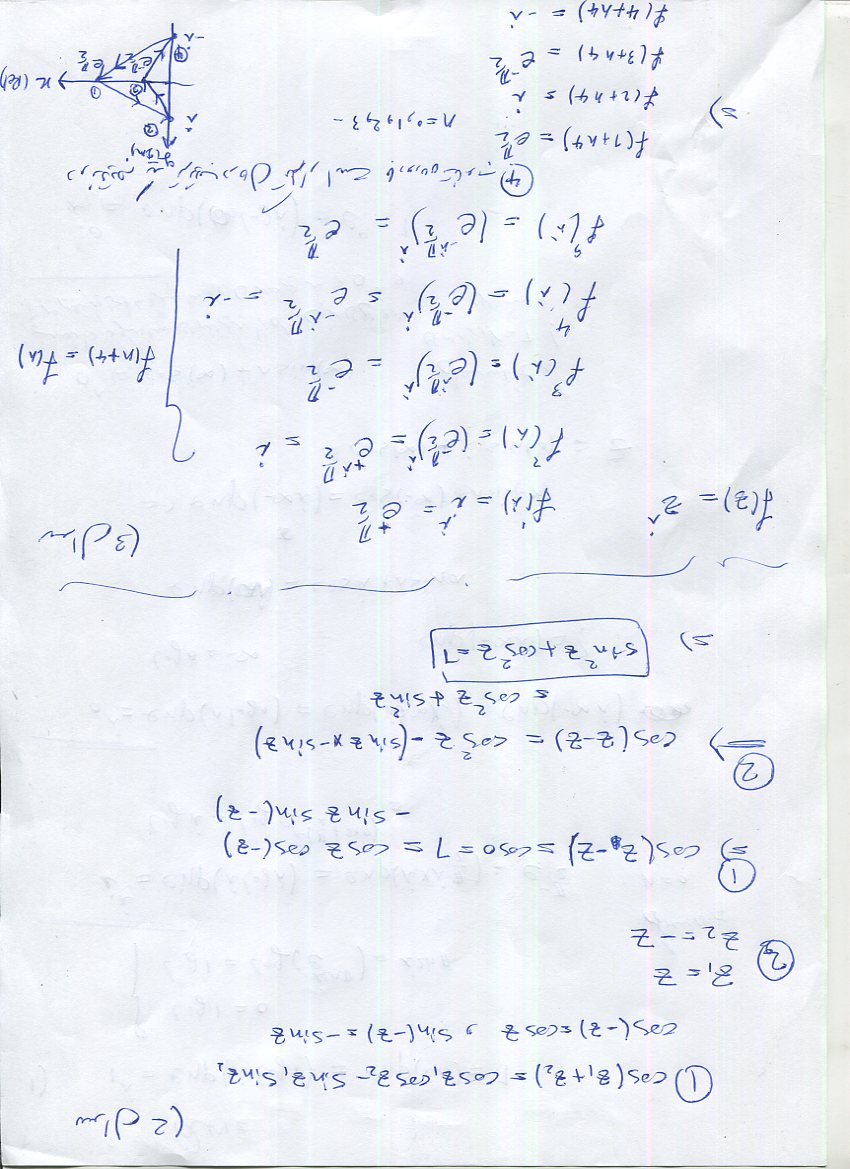 سوال 2)
① cos(z₁+z₂) = cosz₁cosz₂ - sinz₁sinz₂
cos(-z) = cosz , sin(-z) = -sinz
② z₁ = z
z₂ = -z
① ⇒ cos(z-z) = cos0 = 1 = cosz cos(-z)
- sinz sin(-z)
② ⇒ cos(z-z) = cos²z - (sinz x -sinz)
= cos²z + sin²z
⇒ sin²z + cos²z = 1
سوال 3)
f(z) = z^i f¹(i) = i^i = e^{+π/2}
f²(i) = (e^{-π/2})^i = e^{+iπ/2} = i
f³(i) = (e^{iπ/2})^i = e^{-π/2}
f⁴(i) = (e^{-π/2})^i = e^{-iπ/2} = -i
f⁵(i) = (e^{-iπ/2})^i = e^{π/2}
f(n+4) = f(n)
در نتیجه یک ترتیب در حال تکرار است با دوره تناوب ④
⇒ f(1+n4) = e^{π/2}
f(2+n4) = i n=0,1,2,3 -
f(3+n4) = e^{-π/2}
f(4+n4) = -i
y(Im)
i ②
③ ① x (Re)
④ e^{-π/2} e^{π/2}
-i